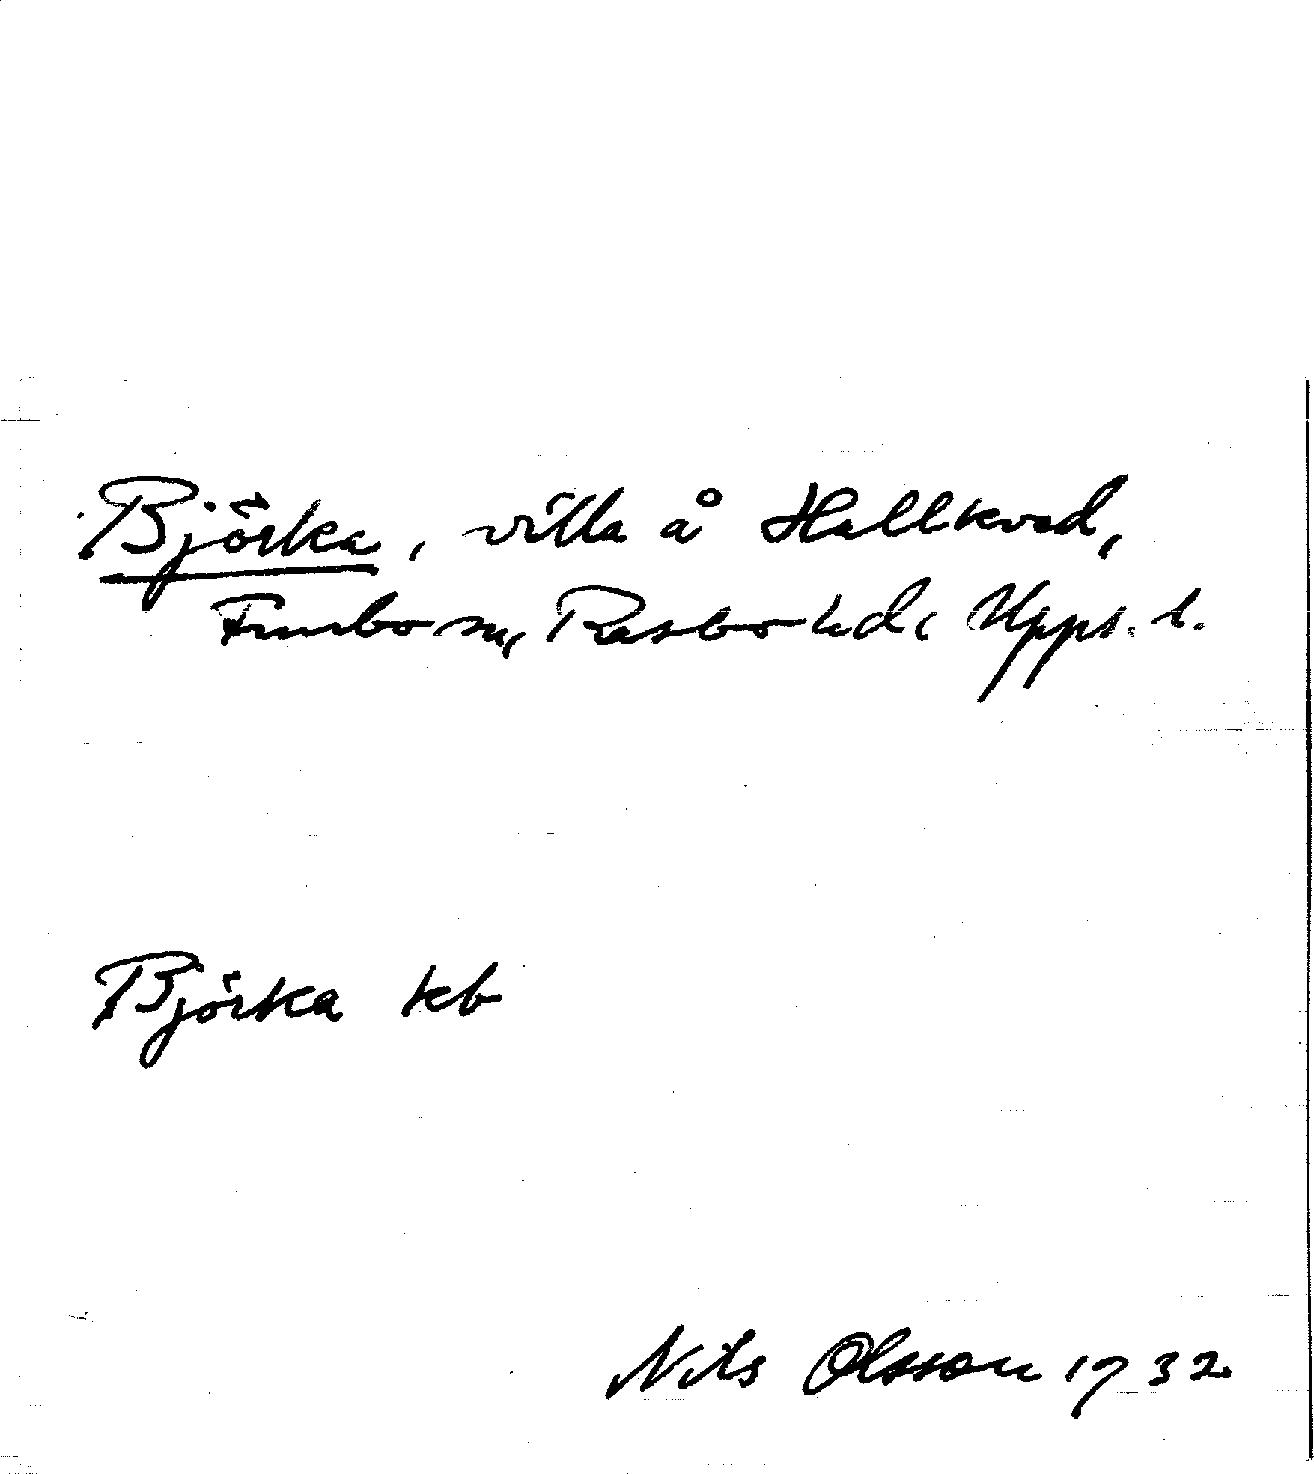 Björka, villa å Hallkved,
Funbo sn, Rasbo hd, Upps. l.
Björka kb
Nils Olsson 1932.